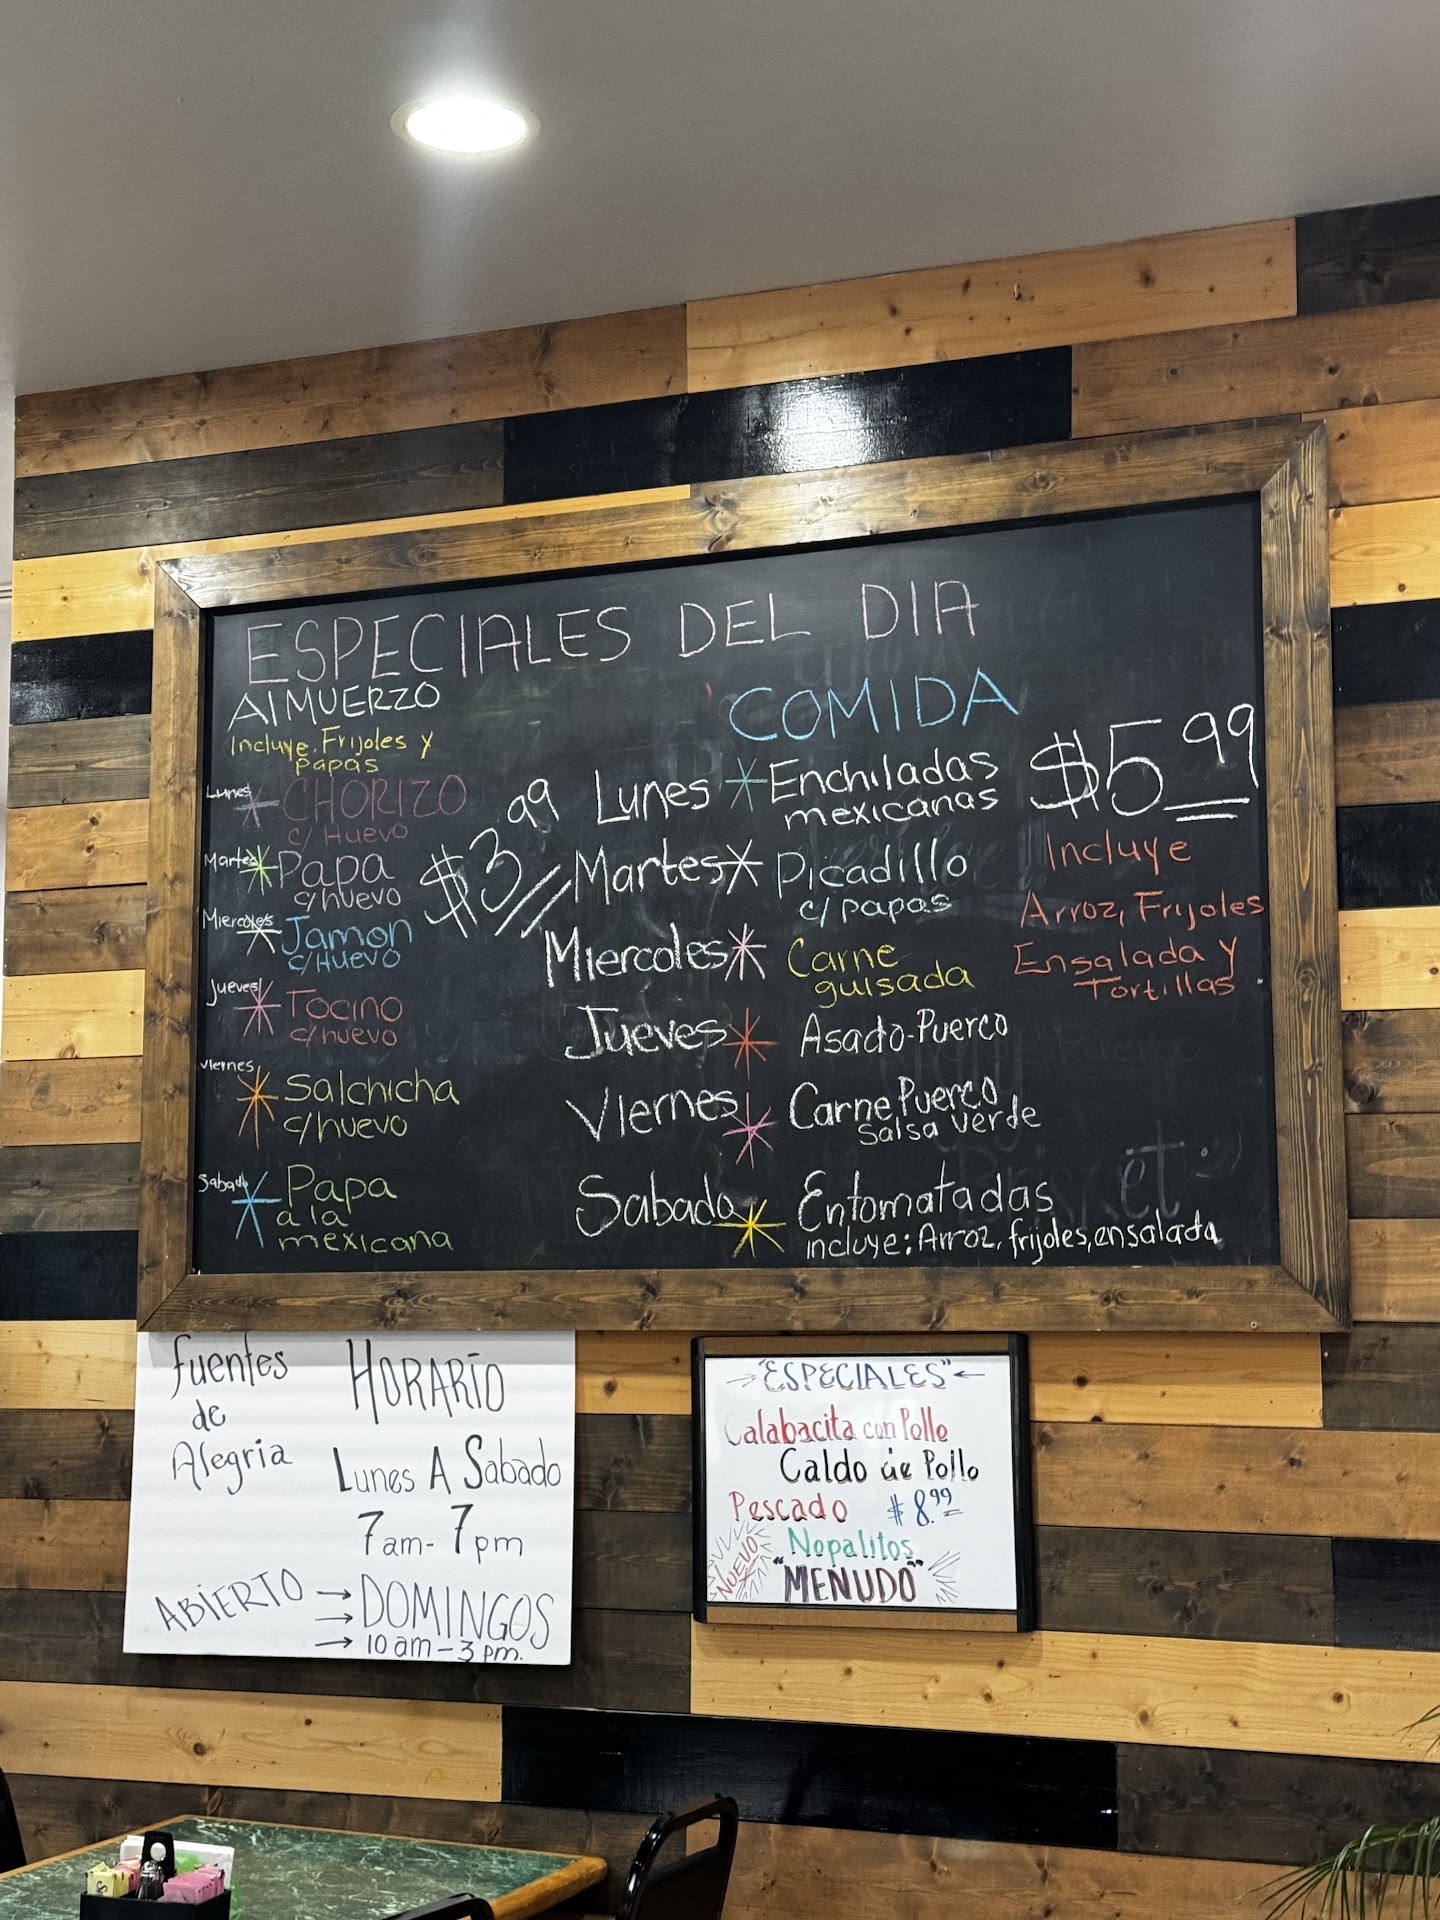 ESPECIALES DEL DIA
AlMUERZO
Incluye. Frijoles y
papas
Lunes CHORIZO
c/ Huevo
Martes Papa
c/huevo
Miercoles Jamon
c/Huevo
Jueves Tocino
c/huevo
Viernes Salchicha
c/huevo
Sabado Papa
a la
mexicana
$3.99
COMIDA
Lunes Enchiladas
mexicanas
Martes Picadillo
c/papas
Miercoles Carne
guisada
Jueves Asado-Puerco
Viernes Carne Puerco
Salsa Verde
Sabado Entomatadas
incluye: Arroz, frijoles, ensalada
$5.99
Incluye
Arroz, Frijoles
Ensalada y
Tortillas
fuentes
de
Alegria
HORARIO
Lunes A Sabado
7am-7pm
ABIERTO → DOMINGOS
→ 10am-3pm.
→ "ESPECIALES" ←
Calabacita con Pollo
Caldo de Pollo
Pescado $8.99
Nopalitos
NUEVO "MENUDO"